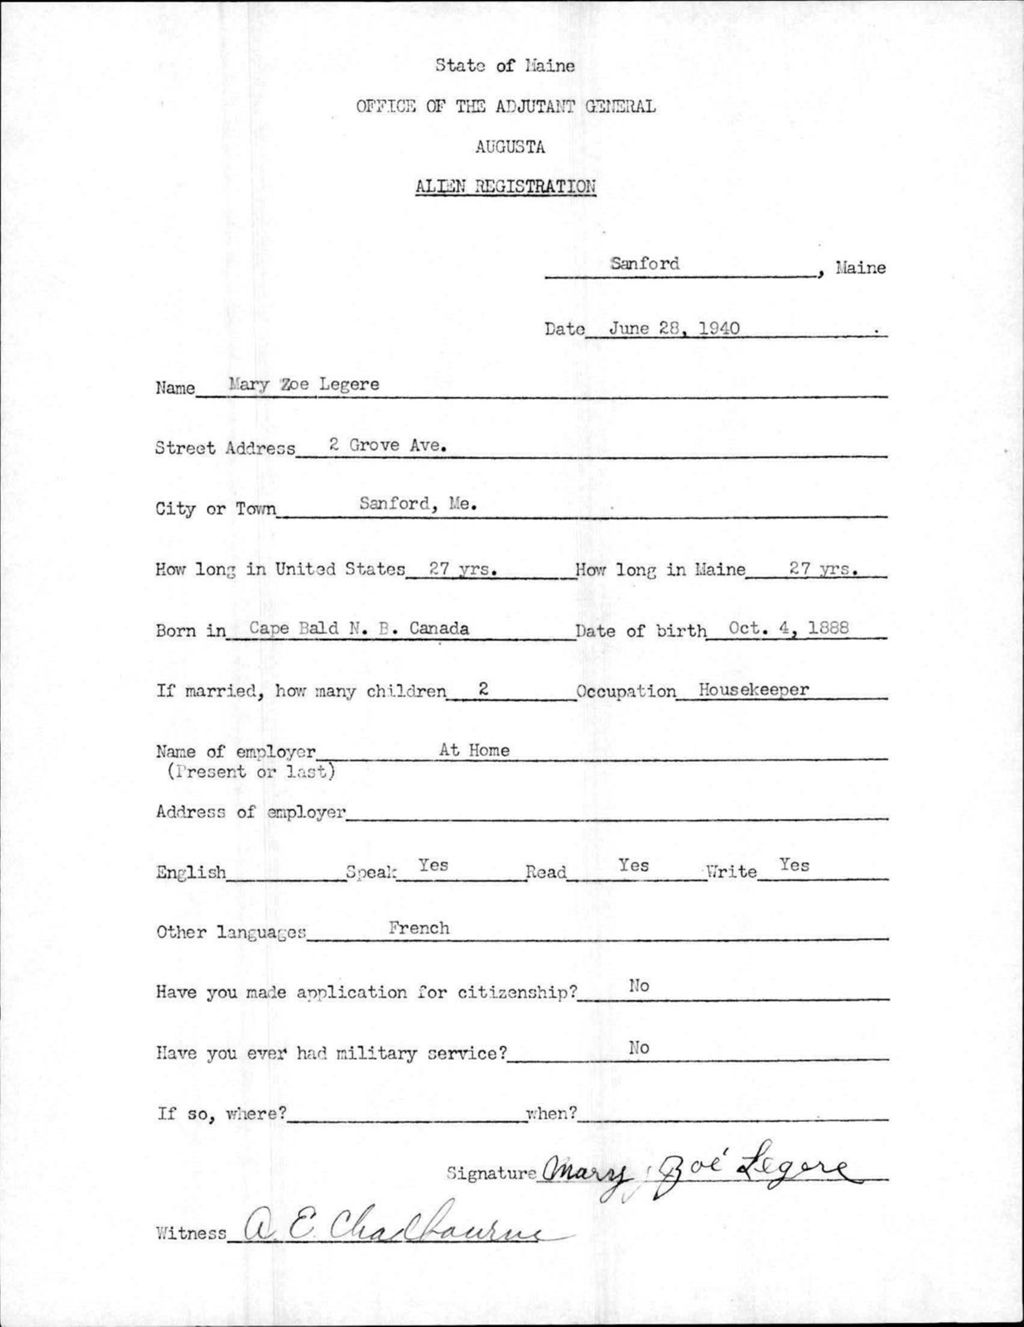 State of Maine
OFFICE OF THE ADJUTANT GENERAL
AUGUSTA
ALIEN REGISTRATION
Sanford, Maine
Date June 28, 1940
Name Mary Zoe Legere
Street Address 2 Grove Ave.
City or Town Sanford, Me.
How long in United States 27 yrs. How long in Maine 27 yrs.
Born in Cape Bald N. B. Canada Date of birth Oct. 4, 1888
If married, how many children 2 Occupation Housekeeper
Name of employer At Home
(Present or last)
Address of employer
English Speak Yes Read Yes Write Yes
Other languages French
Have you made application for citizenship? No
Have you ever had military service? No
If so, where? when?
Signature Mary Zoé Legere
Witness A. E. Chadbourne